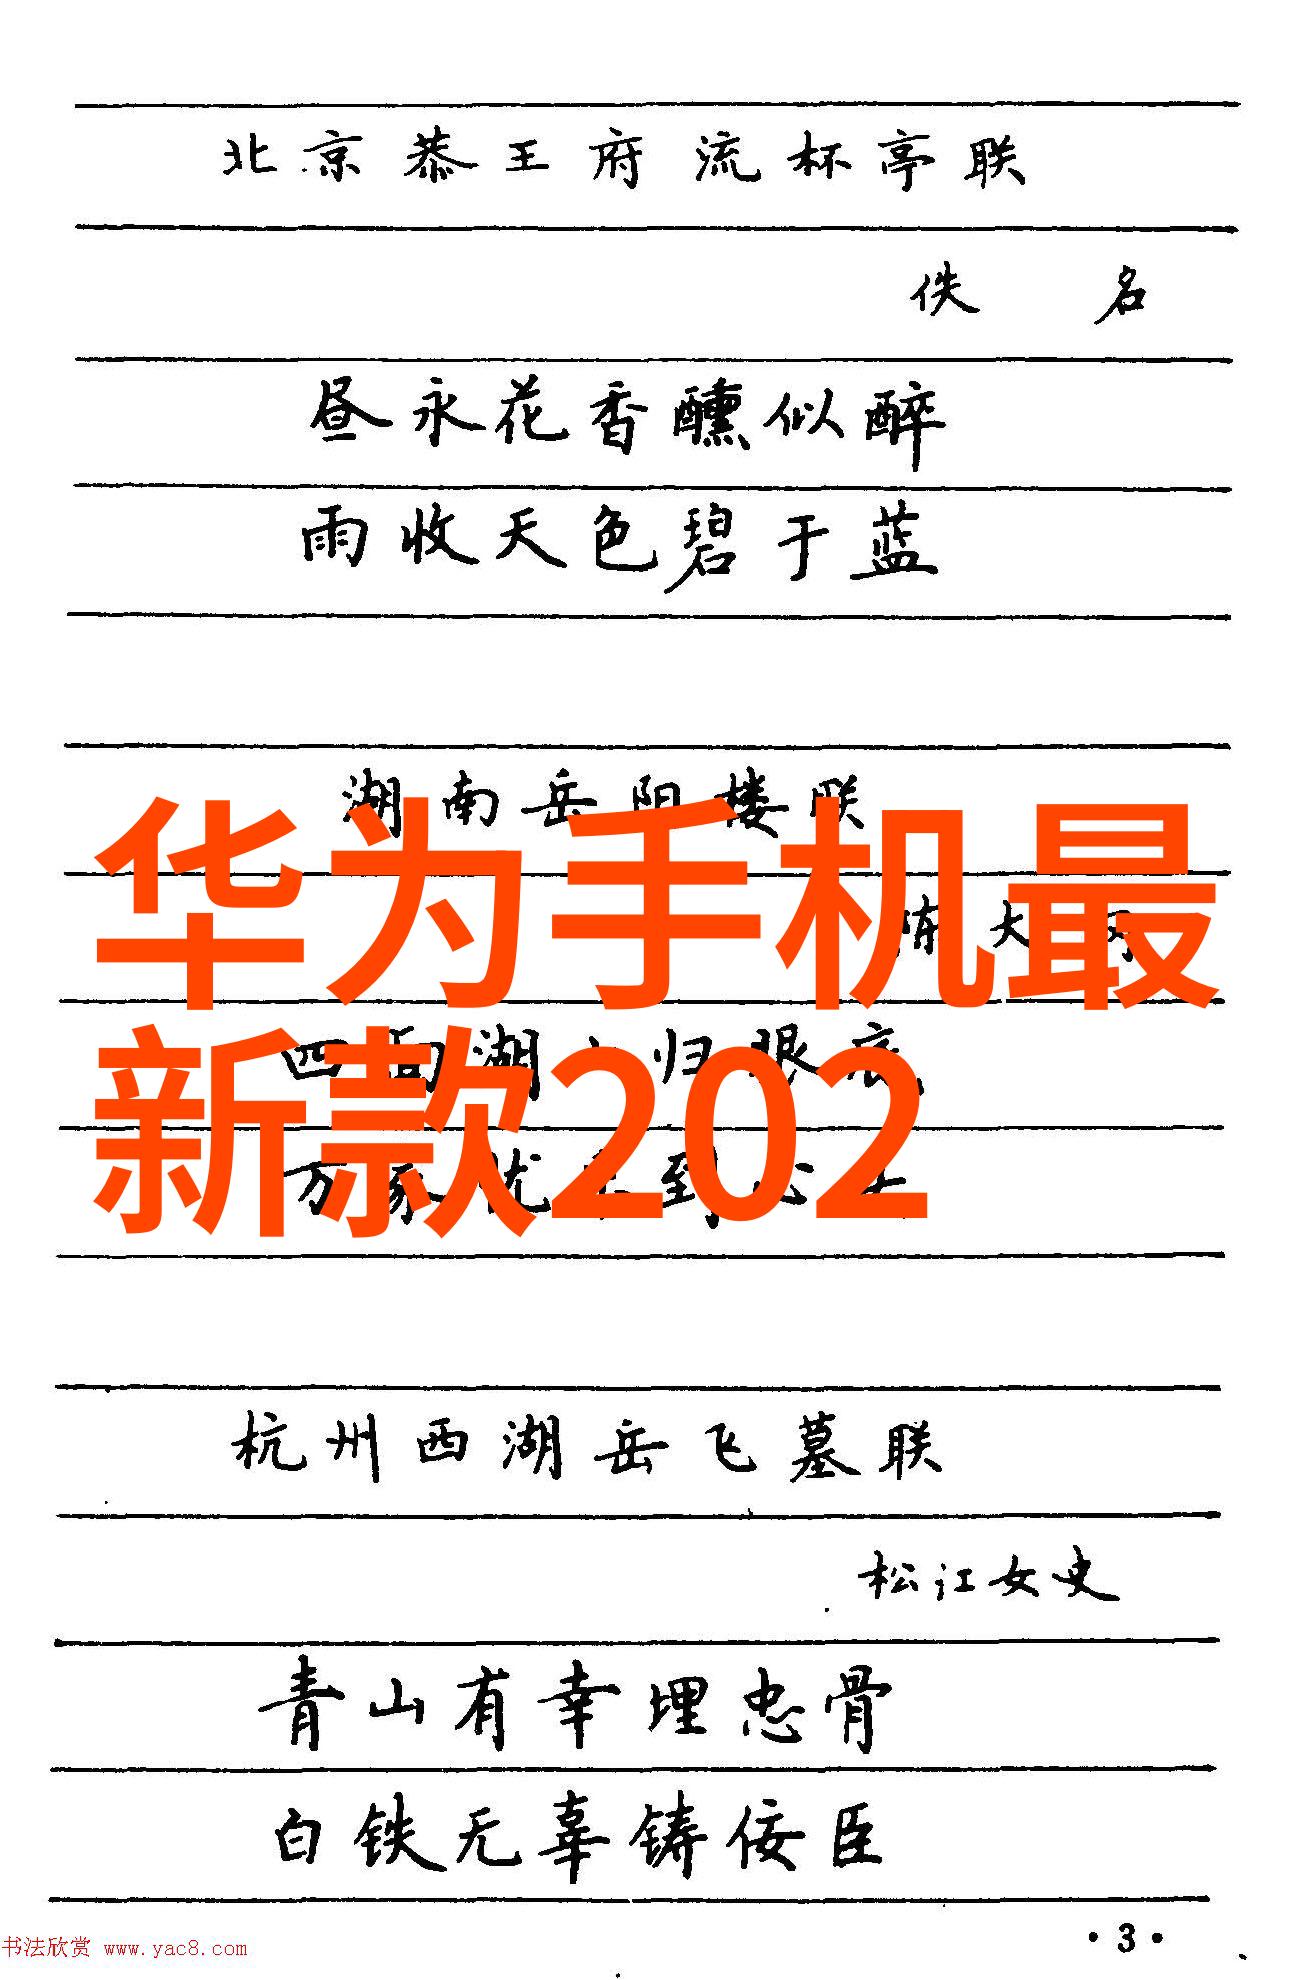 北京恭王府流杯亭联
佚名
昼永花香醺似醉
雨收天色碧于蓝
湖南岳阳楼联
华为手机最
大
新款202
四面湖归眼底
万家忧到心
杭州西湖岳飞墓联
松江女史
青山有幸埋忠骨
白铁无辜铸佞臣
·3·
书法欣赏 www.yac8.com